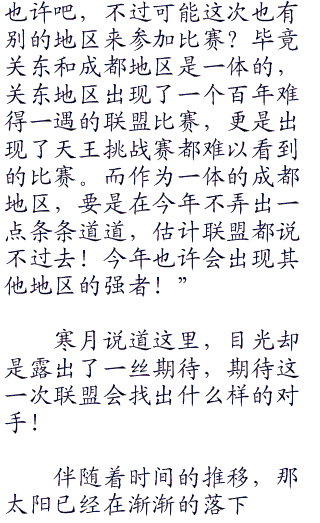 也许吧，不过可能这次也有
别的地区来参加比赛？毕竟
关东和成都地区是一体的，
关东地区出现了一个百年难
得一遇的联盟比赛，更是出
现了天王挑战赛都难以看到
的比赛。而作为一体的成都
地区，要是在今年不弄出一
点条条道道，估计联盟都说
不过去！今年也许会出现其
他地区的强者！”
寒月说道这里，目光却
是露出了一丝期待，期待这
一次联盟会找出什么样的对
手！
伴随着时间的推移，那
太阳已经在渐渐的落下